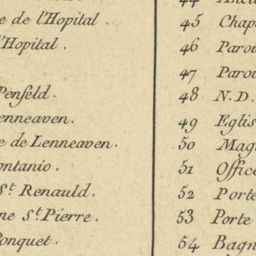 e de l'Hopital .
l'Hopital .
Penfeld.
enneaven.
e de Lenneaven.
ontanio.
St. Renauld.
ne St. Pierre.
Ponquet.
44
45 Chap
46 Paroi
47 Paroi
48 N.D.
49 Eglis
50 Mag
51 Offic
52 Porte
53 Porte
54 Bagn